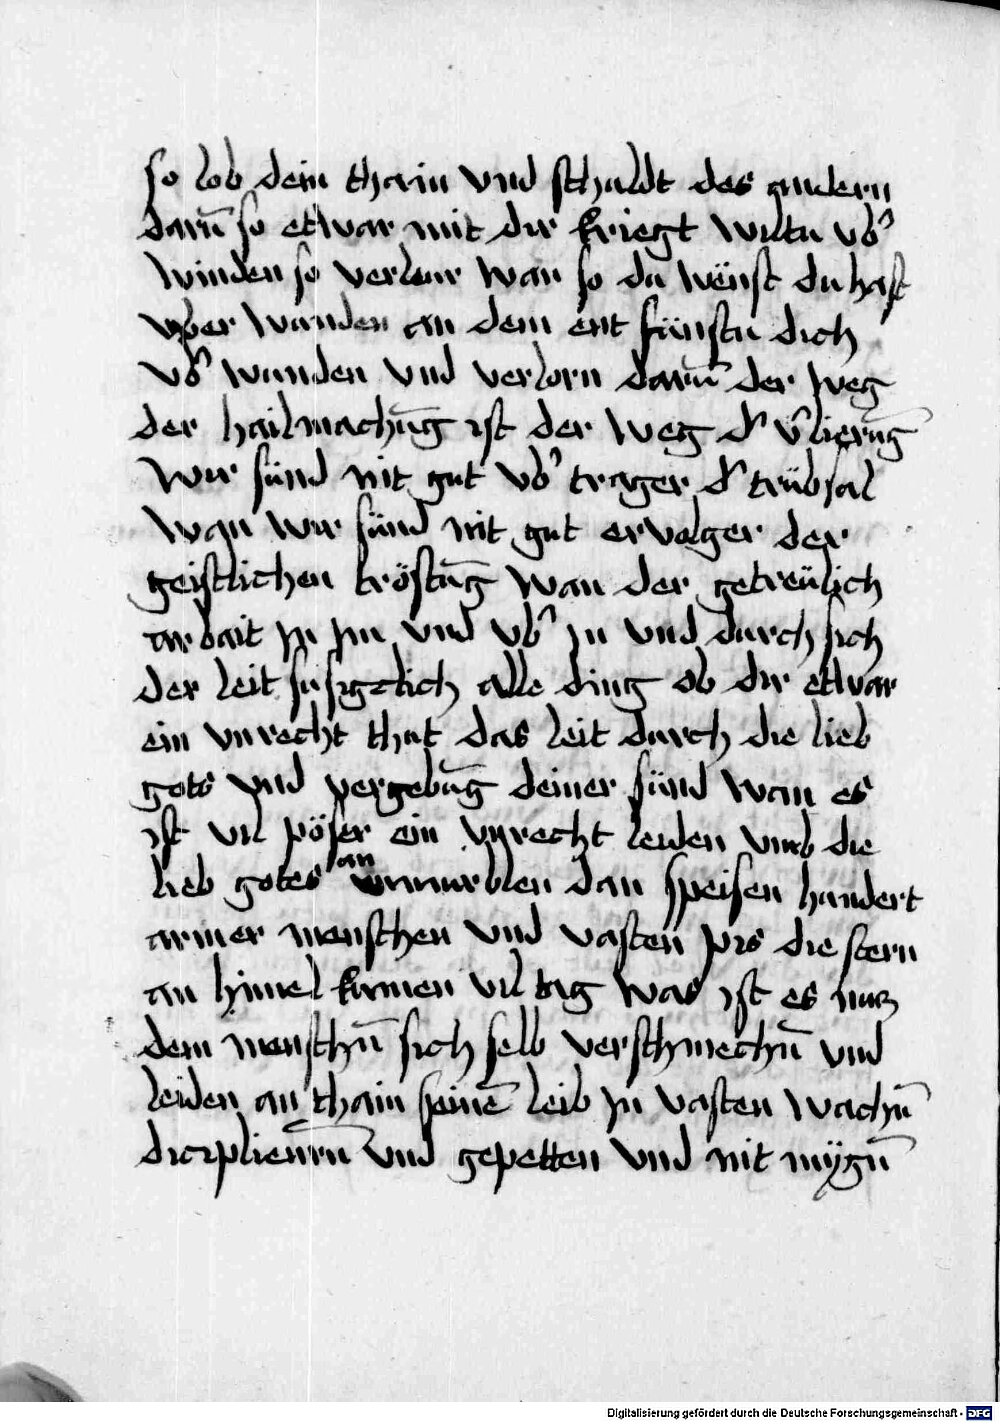 so lob dein thain vnd schuldt des andern
darū so etwar mit dir kriegt wiltu vb̾
winden so verleur wan so du wënst du hast
vber wunden an dem ent fünstu dich
vb̾ wunden vnd verlorn darū der weg
der hailmachūg ist der weg d̾ v̾lierūg
Wir sünd nit gut vb̾ trager d̾ trübsal
wan wir sünd nit gut ervolger der
geistlichen tröstūg wan der getreülich
arbait in im vnd vb̾ in vnd durch sich
der leit alle ding ob dir etwar
ein vnrecht thut das leit durch die lieb
gots vnd vergebūg deiner sünd wan es
ist vil pöser ein vnrecht leiden vmb die
lieb gotes an murblen dan speisen hundert
armer menschen vnd vasten pis die stern
an himel kumen vil tag was ist es nucz
dem menschū sich selb verschmechū vnd
leiden an thain seinē leib in vasten wachū
vnd gepetten vnd nit mÿgū
Digitalisierung gefördert durch die Deutsche Forschungsgemeinschaft - DFG